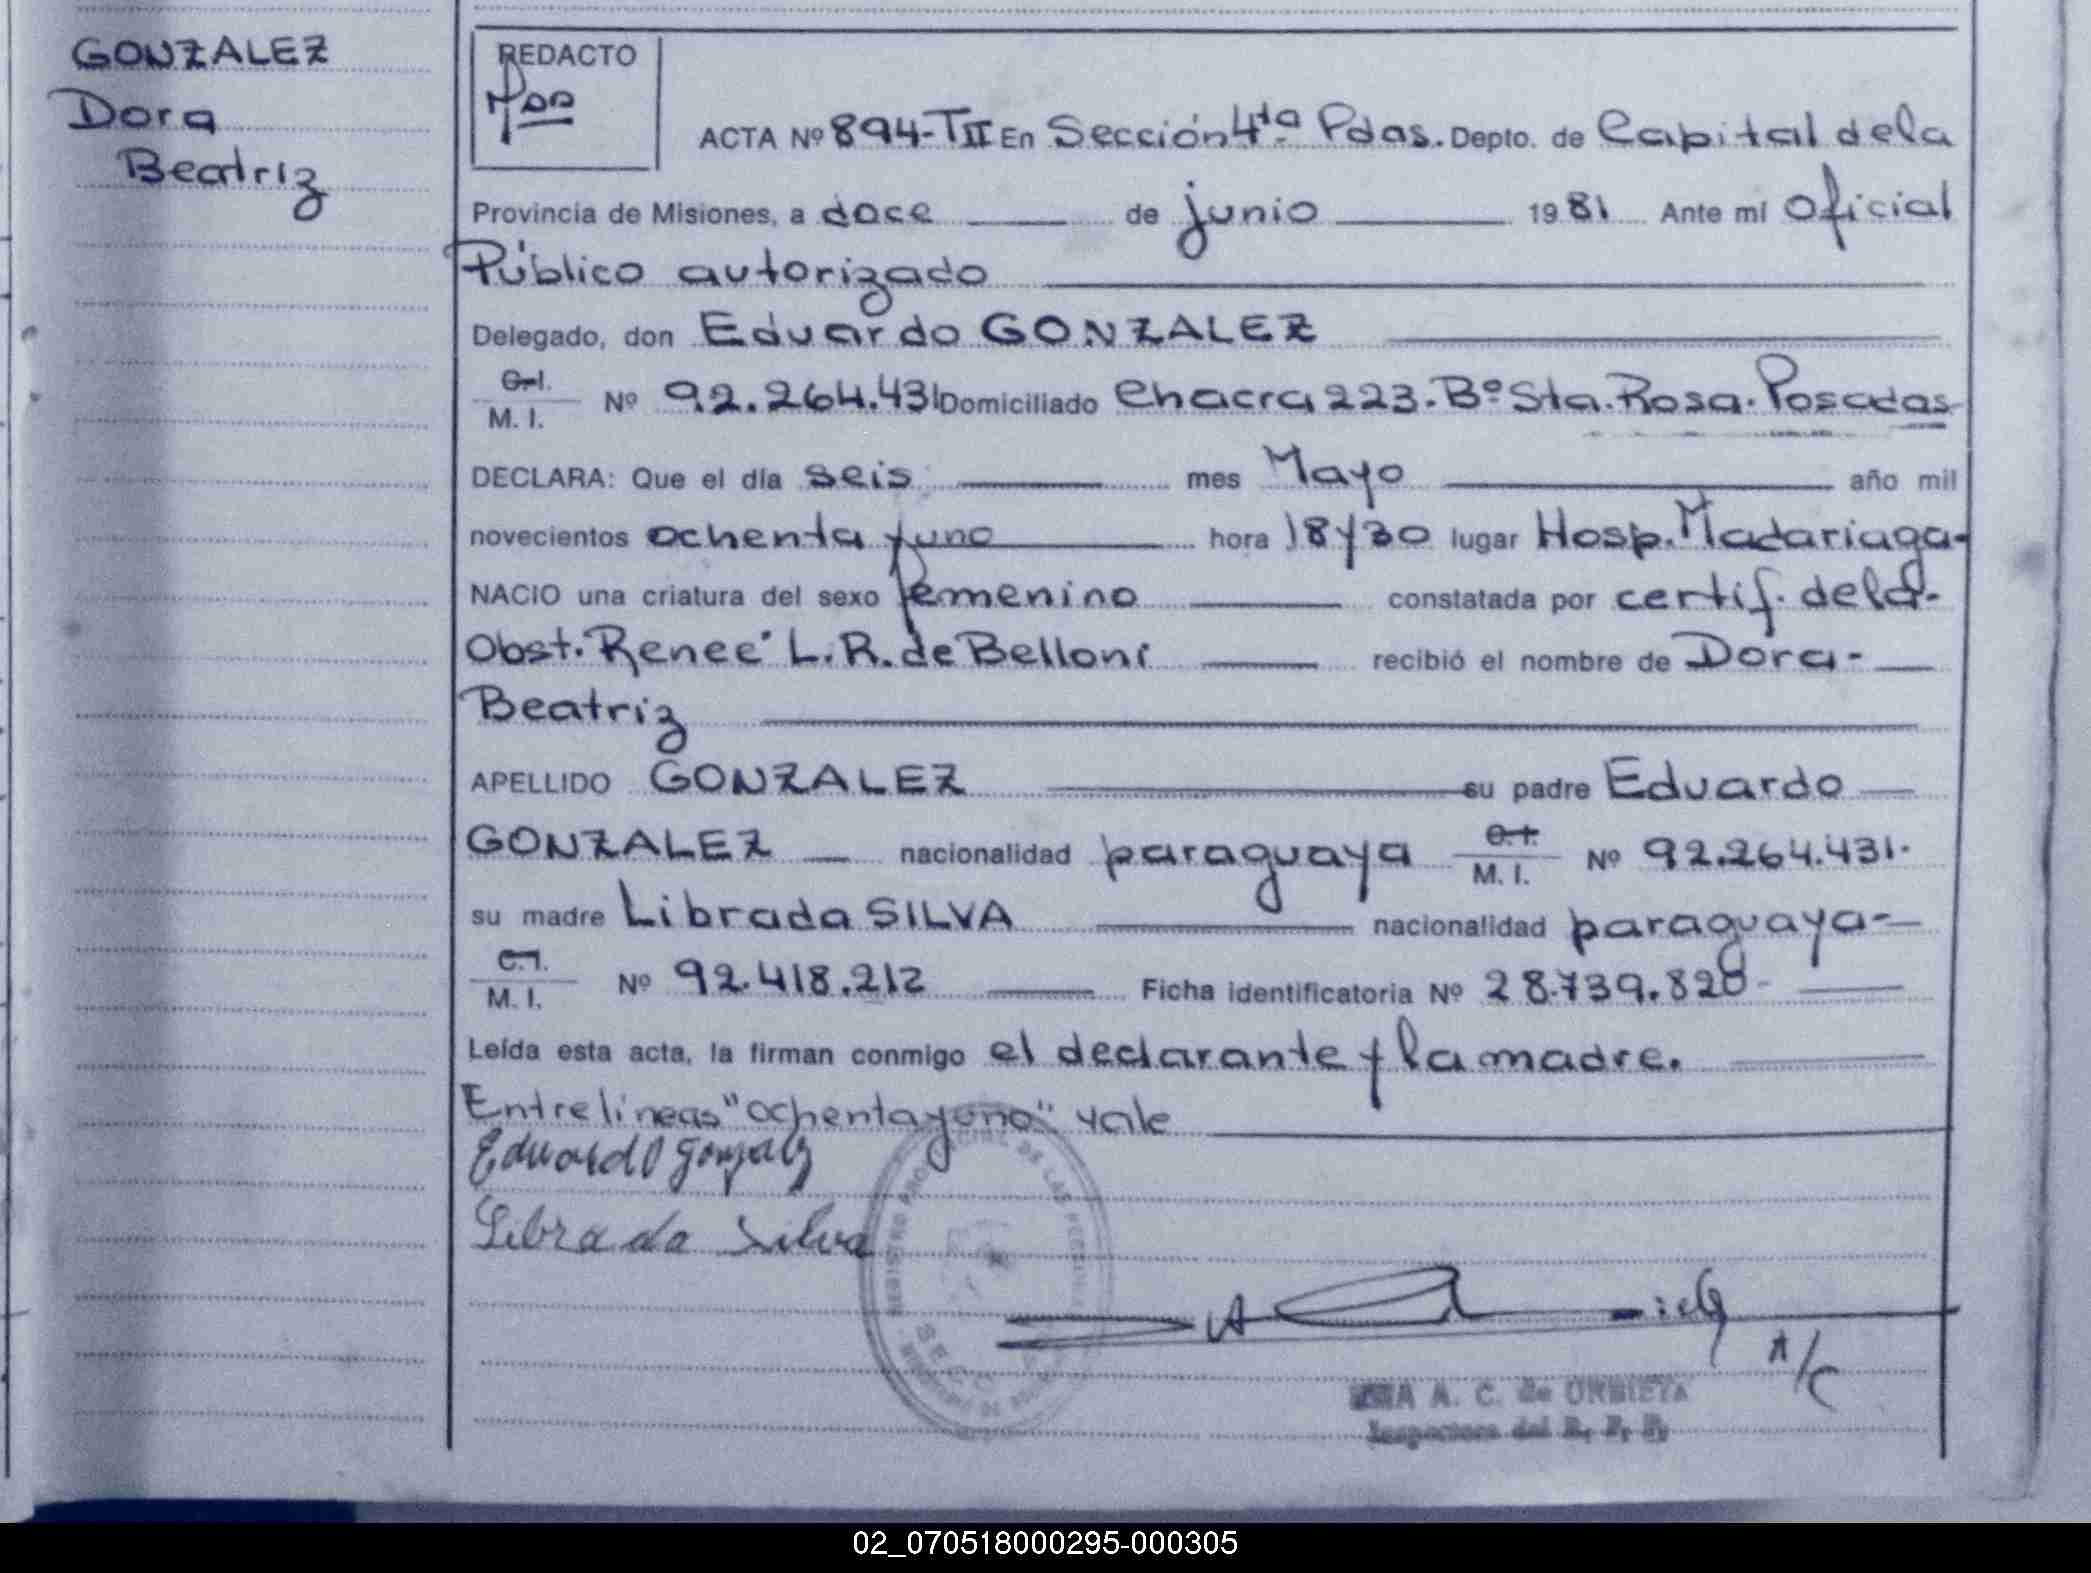 GONZALEZ
Dora
Beatriz
REDACTO
ACTA Nº 894-TII En Sección 4ta Pdas. Depto. de Capital de la
Provincia de Misiones, a doce de junio 1981 Ante mi Oficial
Público autorizado
Delegado, don Eduardo GONZALEZ
C.I.
M. I. Nº 92.264.431 Domiciliado Chacra 223. Bº Sta. Rosa. Posadas
DECLARA: Que el día seis mes Mayo año mil
novecientos ochenta y uno hora 18y30 lugar Hosp. Madariaga-
NACIO una criatura del sexo femenino constatada por certif. de la-
Obst. Reneé L. R. de Belloni recibió el nombre de Dora-
Beatriz
APELLIDO GONZALEZ su padre Eduardo
GONZALEZ nacionalidad paraguaya C.I. M. I. Nº 92.264.431.
su madre Librada SILVA nacionalidad paraguaya-
C.I.
M. I. Nº 92.418.212 Ficha identificatoria Nº 28.739.828-
Leída esta acta, la firman conmigo el declarante y la madre.
Entrelíneas "ochenta y uno" vale
Eduardo Gonzalez
Librada Silva
A/C
A. C. de ORBIETA
Inspectora del R. P. P.
02_070518000295-000305